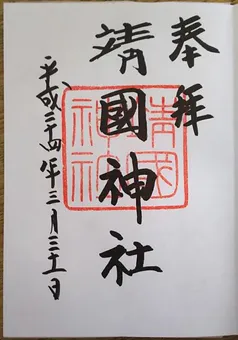 奉拝
靖國神社
平成二十四年三月三十一日
靖國
神社